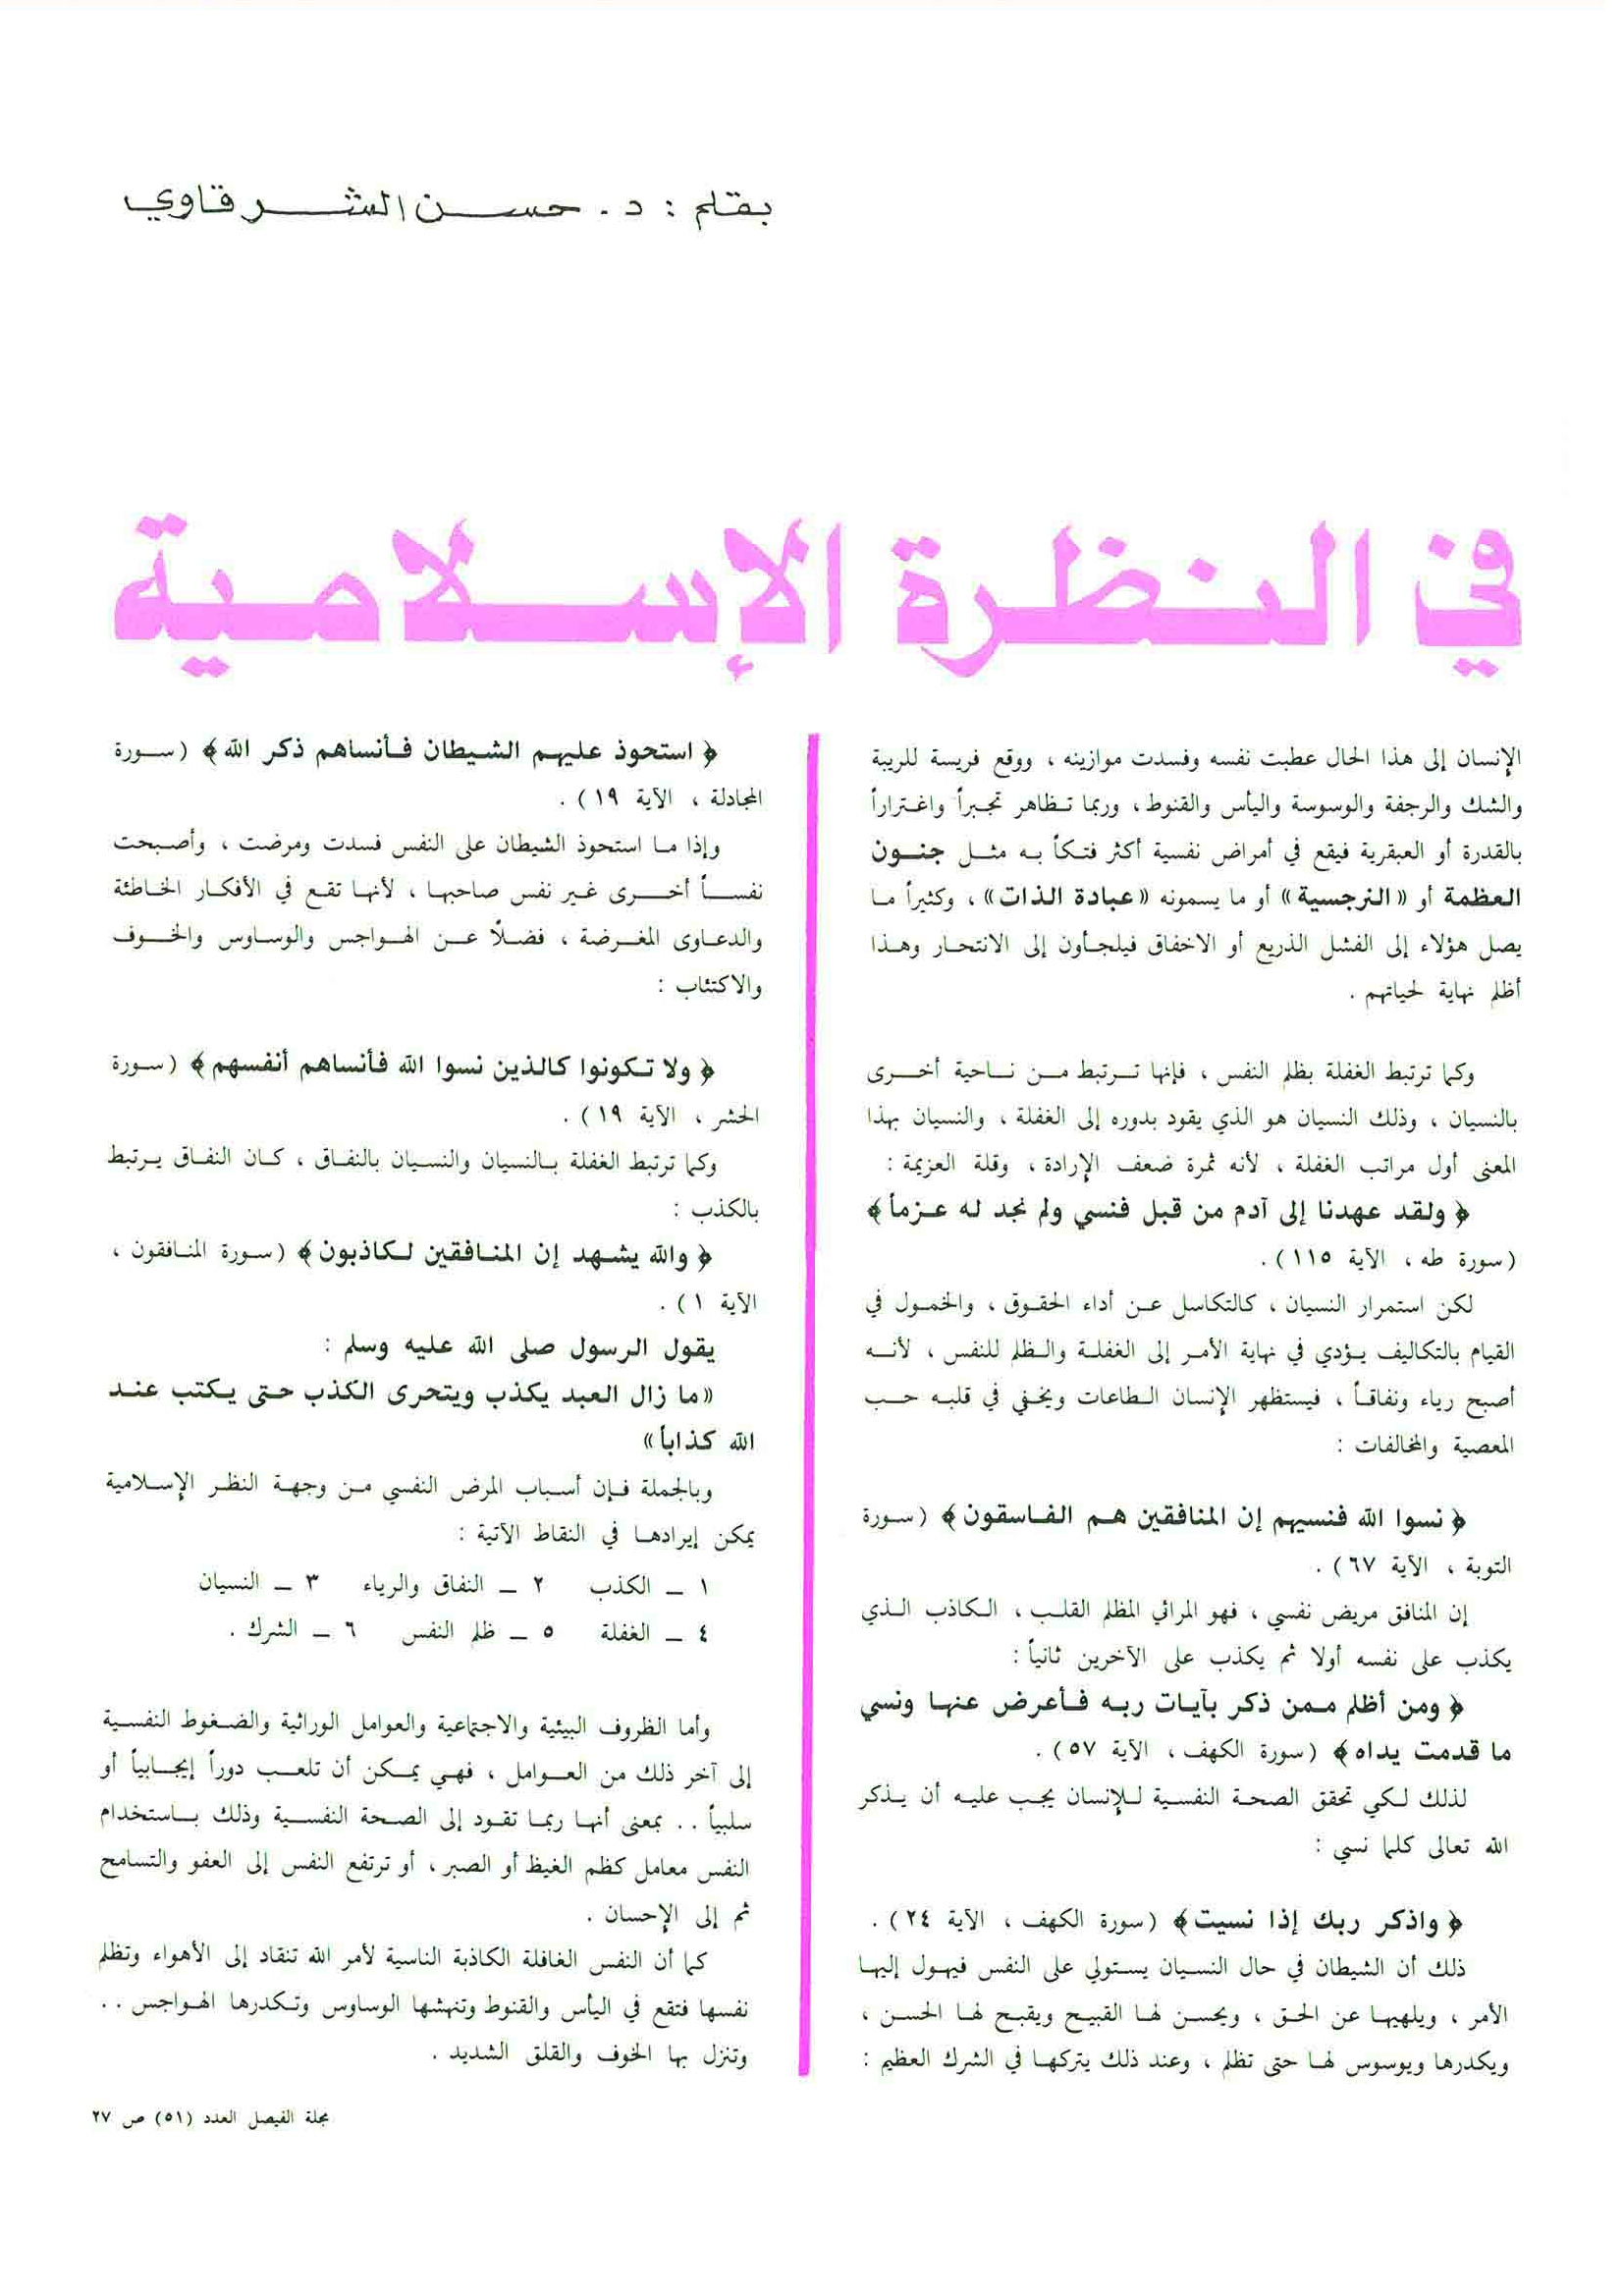 بقلم : د . حسن الشرقاوي
في النظرة الإسلامية
الإنسان إلى هذا الحال عطبت نفسه وفسدت موازينه ، ووقع فريسة للريبة
والشك والرجفة والوسوسة واليأس والقنوط ، وربما تظاهر تجبراً واغتراراً
بالقدرة أو العبقرية فيقع في أمراض نفسية أكثر فتكاً به مثل جنون
العظمة أو «النرجسية» أو ما يسمونه «عبادة الذات» ، وكثيراً ما
يصل هؤلاء إلى الفشل الذريع أو الاخفاق فيلجأون إلى الانتحار وهذا
أظلم نهاية لحياتهم .
وكما ترتبط الغفلة بظلم النفس ، فإنها ترتبط من ناحية أخرى
بالنسيان ، وذلك النسيان هو الذي يقود بدوره إلى الغفلة ، والنسيان بهذا
المعنى أول مراتب الغفلة ، لأنه ثمرة ضعف الإرادة ، وقلة العزيمة :
﴿ ولقد عهدنا إلى آدم من قبل فنسي ولم نجد له عزماً ﴾
(سورة طه ، الآية ١١٥) .
لكن استمرار النسيان ، كالتكاسل عن أداء الحقوق ، والخمول في
القيام بالتكاليف يؤدي في نهاية الأمر إلى الغفلة والظلم للنفس ، لأنه
أصبح رياء ونفاقاً ، فيستظهر الإنسان الطاعات ويخفي في قلبه حب
المعصية والمخالفات :
﴿ نسوا الله فنسيهم إن المنافقين هم الفاسقون ﴾ (سورة
التوبة ، الآية ٦٧) .
إن المنافق مريض نفسي ، فهو المرائي المظلم القلب ، الكاذب الذي
يكذب على نفسه أولا ثم يكذب على الآخرين ثانياً :
﴿ ومن أظلم ممن ذكر بآيات ربه فأعرض عنها ونسي
ما قدمت يداه ﴾ (سورة الكهف ، الآية ٥٧) .
لذلك لكي تحقق الصحة النفسية للإنسان يجب عليه أن يذكر
الله تعالى كلما نسي :
﴿ واذكر ربك إذا نسيت ﴾ (سورة الكهف ، الآية ٢٤) .
ذلك أن الشيطان في حال النسيان يستولي على النفس فيهول إليها
الأمر ، ويلهيها عن الحق ، ويحسن لها القبيح ويقبح لها الحسن ،
ويكدرها ويوسوس لها حتى تظلم ، وعند ذلك يتركها في الشرك العظيم :
﴿ استحوذ عليهم الشيطان فأنساهم ذكر الله ﴾ (سورة
المجادلة ، الآية ١٩) .
وإذا ما استحوذ الشيطان على النفس فسدت ومرضت ، وأصبحت
نفساً أخرى غير نفس صاحبها ، لأنها تقع في الأفكار الخاطئة
والدعاوى المغرضة ، فضلاً عن الهواجس والوساوس والخوف
والاكتئاب :
﴿ ولا تكونوا كالذين نسوا الله فأنساهم أنفسهم ﴾ (سورة
الحشر ، الآية ١٩) .
وكما ترتبط الغفلة بالنسيان والنسيان بالنفاق ، كان النفاق يرتبط
بالكذب :
﴿ والله يشهد إن المنافقين لكاذبون ﴾ (سورة المنافقون ،
الآية ١) .
يقول الرسول صلى الله عليه وسلم :
«ما زال العبد يكذب ويتحرى الكذب حتى يكتب عند
الله كذاباً»
وبالجملة فإن أسباب المرض النفسي من وجهة النظر الإسلامية
يمكن إيرادها في النقاط الآتية :
١ ــ الكذب ٢ ــ النفاق والرياء ٣ ــ النسيان
٤ ــ الغفلة ٥ ــ ظلم النفس ٦ ــ الشرك .
وأما الظروف البيئية والاجتماعية والعوامل الوراثية والضغوط النفسية
إلى آخر ذلك من العوامل ، فهي يمكن أن تلعب دوراً إيجابياً أو
سلبياً .. بمعنى أنها ربما تقود إلى الصحة النفسية وذلك باستخدام
النفس معامل كظم الغيظ أو الصبر ، أو ترتفع النفس إلى العفو والتسامح
ثم إلى الإحسان .
كما أن النفس الغافلة الكاذبة الناسية لأمر الله تنقاد إلى الأهواء وتظلم
نفسها فتقع في اليأس والقنوط وتنهشها الوساوس وتكدرها الهواجس ..
وتنزل بها الخوف والقلق الشديد .
مجلة الفيصل العدد (٥١) ص ٢٧